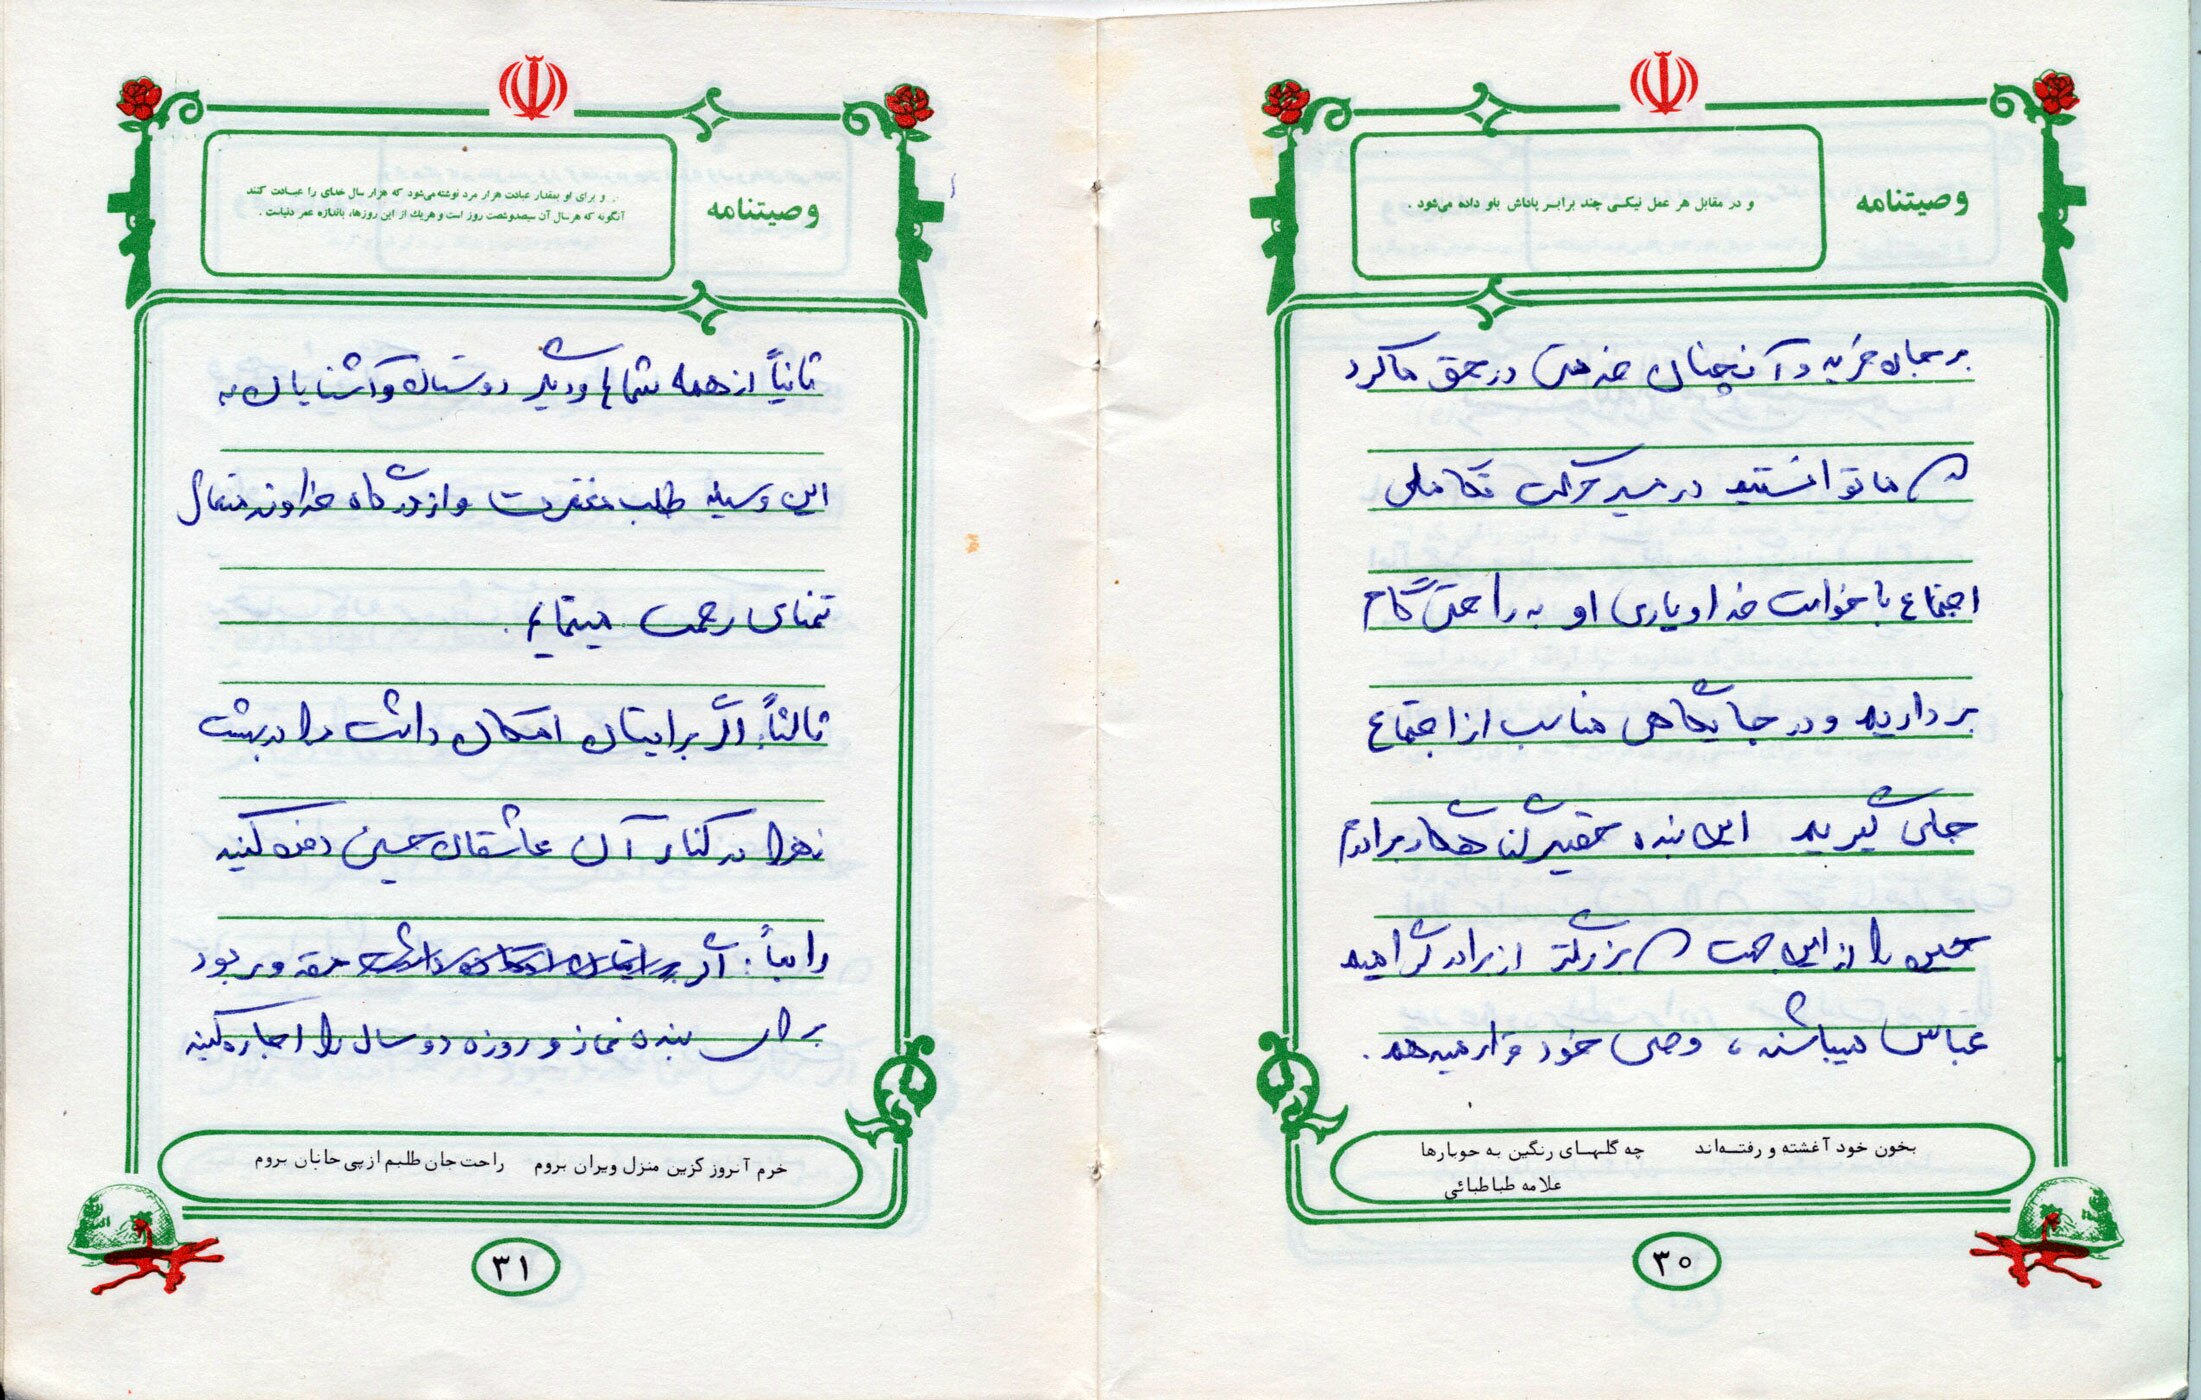 وصیتنامه
و در مقابل هر عمل نیکی چند برابر پاداش باو داده می‌شود .
بر جان خرید و آنچنان خدمتی در حق ما کرد
که ما توانستیم در مسیر حرکت تکاملی
اجتماع با خواست خدا و یاری او به راحتی گام
برداریم و در جایگاهی مناسب از اجتماع
جای گیریم این بنده حقیر گناهکار برادرم
حسین را از این جهت که بزرگتر از برادر گرامیم
عباس میباشند ، وصی خود قرار میدهم .
بخون خود آغشته و رفته‌اند چه گلهای رنگین به جوبارها
علامه طباطبائی
۳۰
وصیتنامه
. و برای او بمقدار عبادت هزار مرد نوشته می‌شود که هزار سال خدای را عبادت کنند
آنگونه که هر سال آن سیصدوشصت روز است و هر یك از این روزها، باندازه عمر دنیاست .
ثانیاً از همه شماها و دیگر دوستان و آشنایان به
این وسیله طلب مغفرت و از درگاه خداوند متعال
تمنای رحمت مینمایم .
ثالثاً: اگر برایتان امکان داشت مرا در بهشت
زهرا در کنار آن عاشقان حسین دفن کنید
رابعاً: اگر برایتان امکان داشت مقدور بود
برای بنده نماز و روزه دو سال را اجاره کنید
خرم آنروز کزین منزل ویران بروم راحت جان طلبم از پی جانان بروم
۳۱